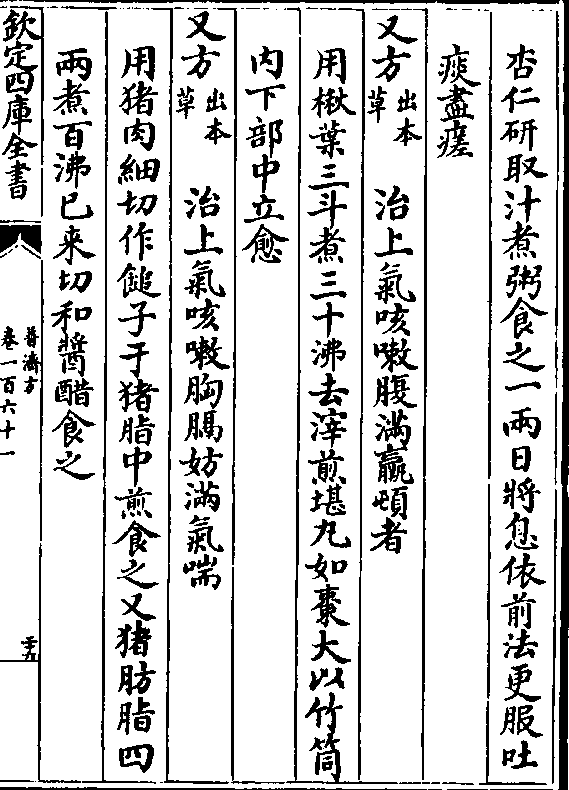 杏仁研取汁煮粥食之一兩日將息依前法更服吐
痰盡瘥
又方出本草　治上氣咳嗽腹滿羸頓者
用楸葉三斗煮三十沸去滓煎堪丸如棗大以竹筒
內下部中立愈
又方出本草　治上氣咳嗽胸膈妨滿氣喘
用猪肉細切作䭔子于猪脂中煎食之又猪肪脂四
兩煮百沸已来切和醬醋食之
欽定四庫全書
普濟方
卷一百六十一